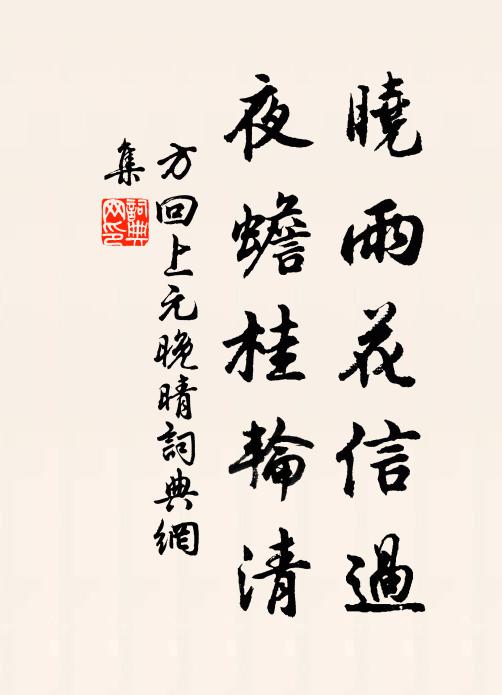 曉雨花信過
夜蟾桂輪清
方回上元晚晴詞典網
集
詞典
网印